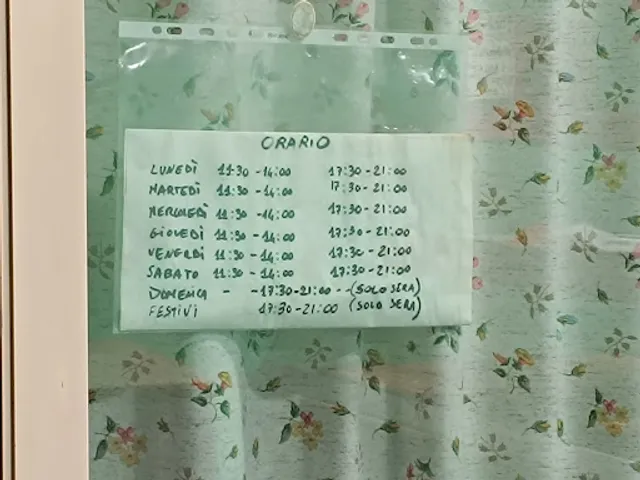 ORARIO
LUNEDÌ 11:30 - 14:00 17:30 - 21:00
MARTEDÌ 11:30 - 14:00 17:30 - 21:00
MERCOLEDÌ 11:30 - 14:00 17:30 - 21:00
GIOVEDÌ 11:30 - 14:00 17:30 - 21:00
VENERDÌ 11:30 - 14:00 17:30 - 21:00
SABATO 11:30 - 14:00 17:30 - 21:00
DOMENICA - - 17:30 - 21:00 - - (SOLO SERA)
FESTIVI 17:30 - 21:00 (SOLO SERA)